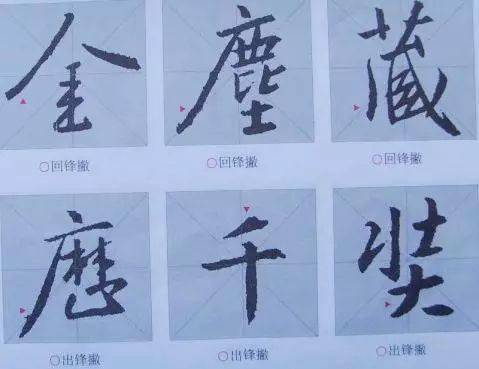 金 塵 藏
○回锋撇 ○回锋撇 ○回锋撇
歷 千 奘
○出锋撇 ○出锋撇 ○出锋撇